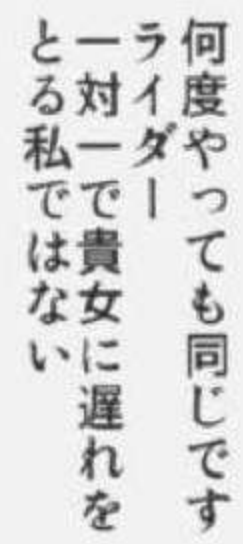 何度やっても同じです
ライダー
一対一で貴女に遅れを
とる私ではない